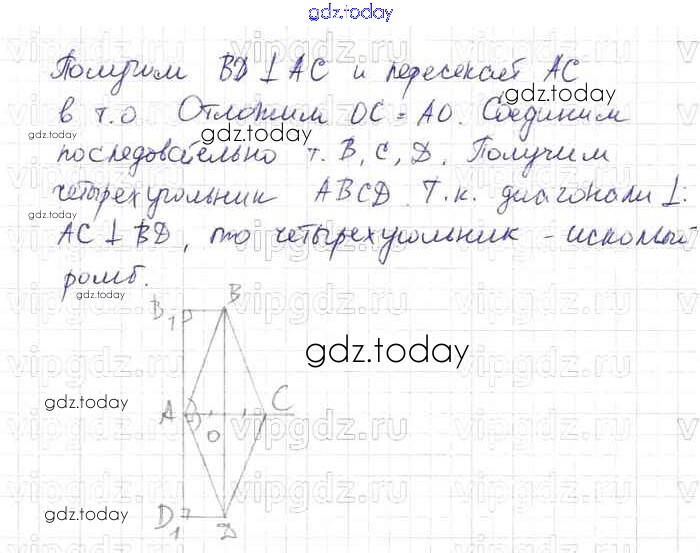 gdz.today
Получим BD ⊥ AC и пересекает AC
в т.О Отложим OC = AO. Соединим
последовательно т. B, C, D. Получим
четырехугольник ABCD. Т.к. диагонали ⊥:
AC ⊥ BD, то четырехугольник - искомый
ромб.
gdz.today
gdz.today
gdz.today
gdz.today
gdz.today
gdz.today
gdz.today
gdz.today
vipgdz.ru
B₁ B
A O C
D₁ D